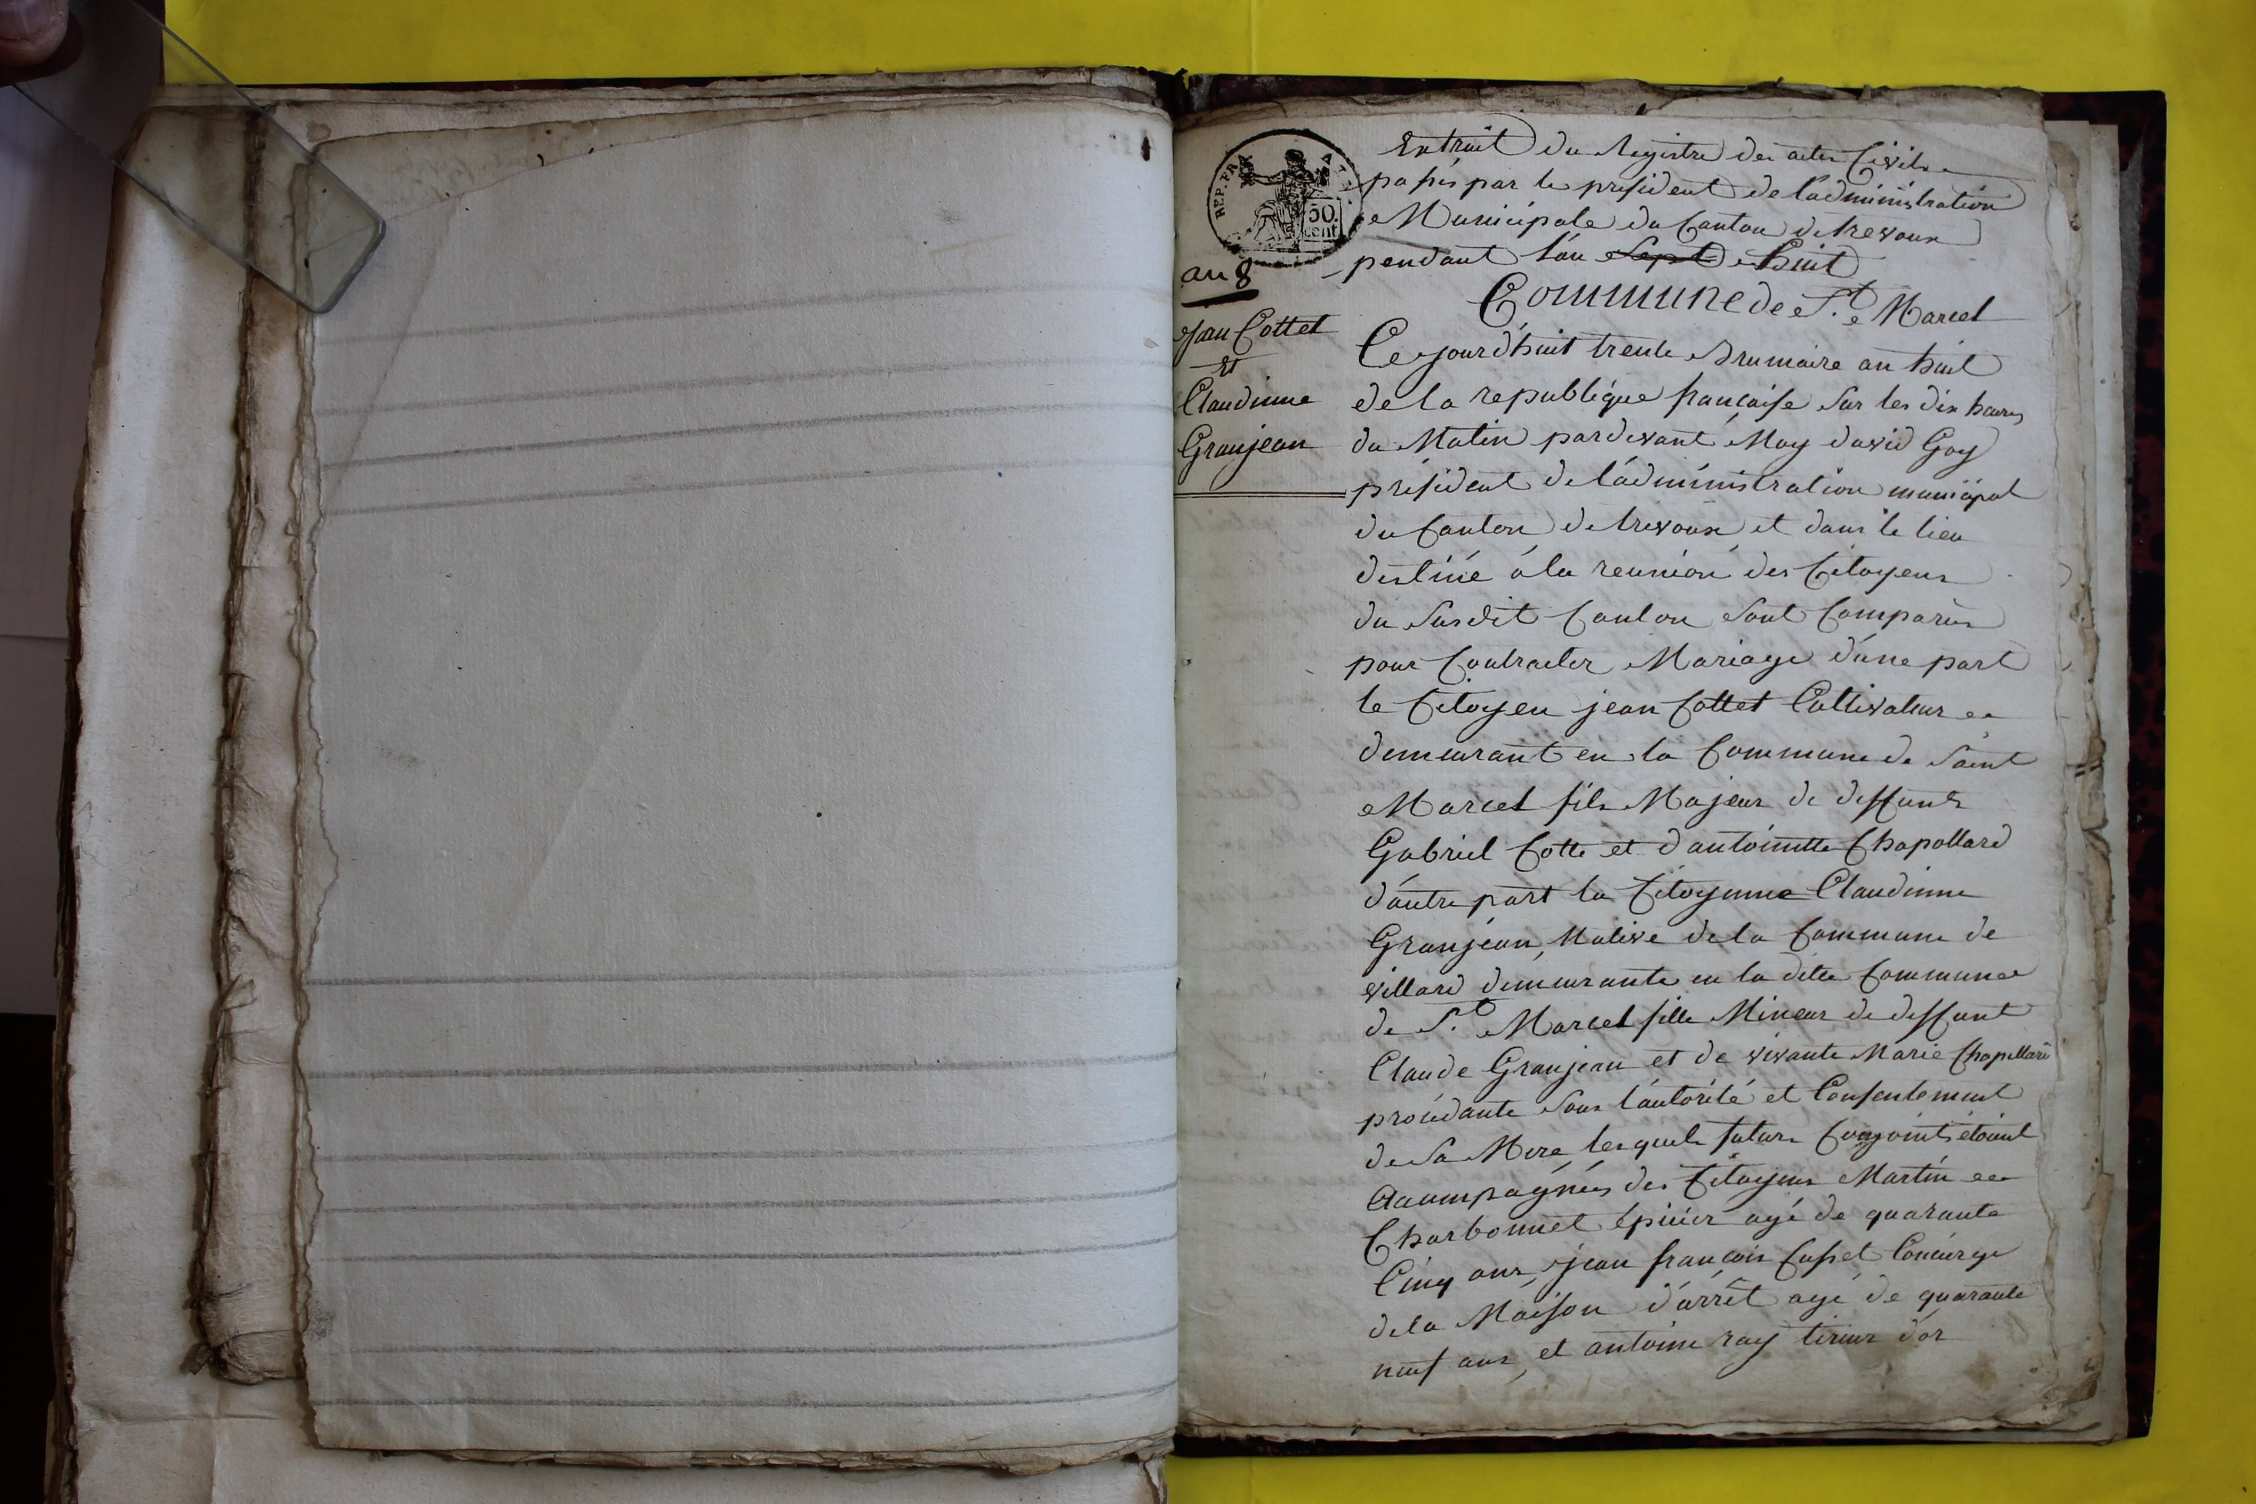 REP. FRA
50.
cent
Extrait du Registre des actes Civils
passés par le president de l'administration
Municipale du Canton de trevoux
pendant l'an Sept huit
an 8
Commune de St. Marcel
Jean Cottet
et
Claudinne
Granjean
Ce jourd'huit trente Brumaire an huit
de la republique française Sur les dix heures
du Matin pardevant Moy david Goy
président de l'administration municipal
du Canton de trevoux et dans le lieu
destiné á la reunion des Citoyens
du Susdit Canton Sont Comparus
pour Contracter Mariage d'une part
le Citoyen jean Cottet Cultivateur
demeurant en la Commune de Saint
Marcel fils Majeur de deffunts
Gabriel Cotte et d'antoinette Chapollard
d'autre part la Citoyenne Claudinne
Granjean, Native de la Commune de
villard demeurante en la dite Commune
de St. Marcel fille Mineur de deffunt
Claude Granjean et de vivante Marie Chapellard
procédante Sous l'autorité et Consentement
de Sa Mere, lesquels futurs Conjoints étoient
Acompagnés des Citoyens Martin
Charbonnet épicier agé de quarante
Cinq ans, jean françois Casset Concierge
de la Maison d'arrêt agé de quarante
neuf ans, et antoine ray tireur d'or